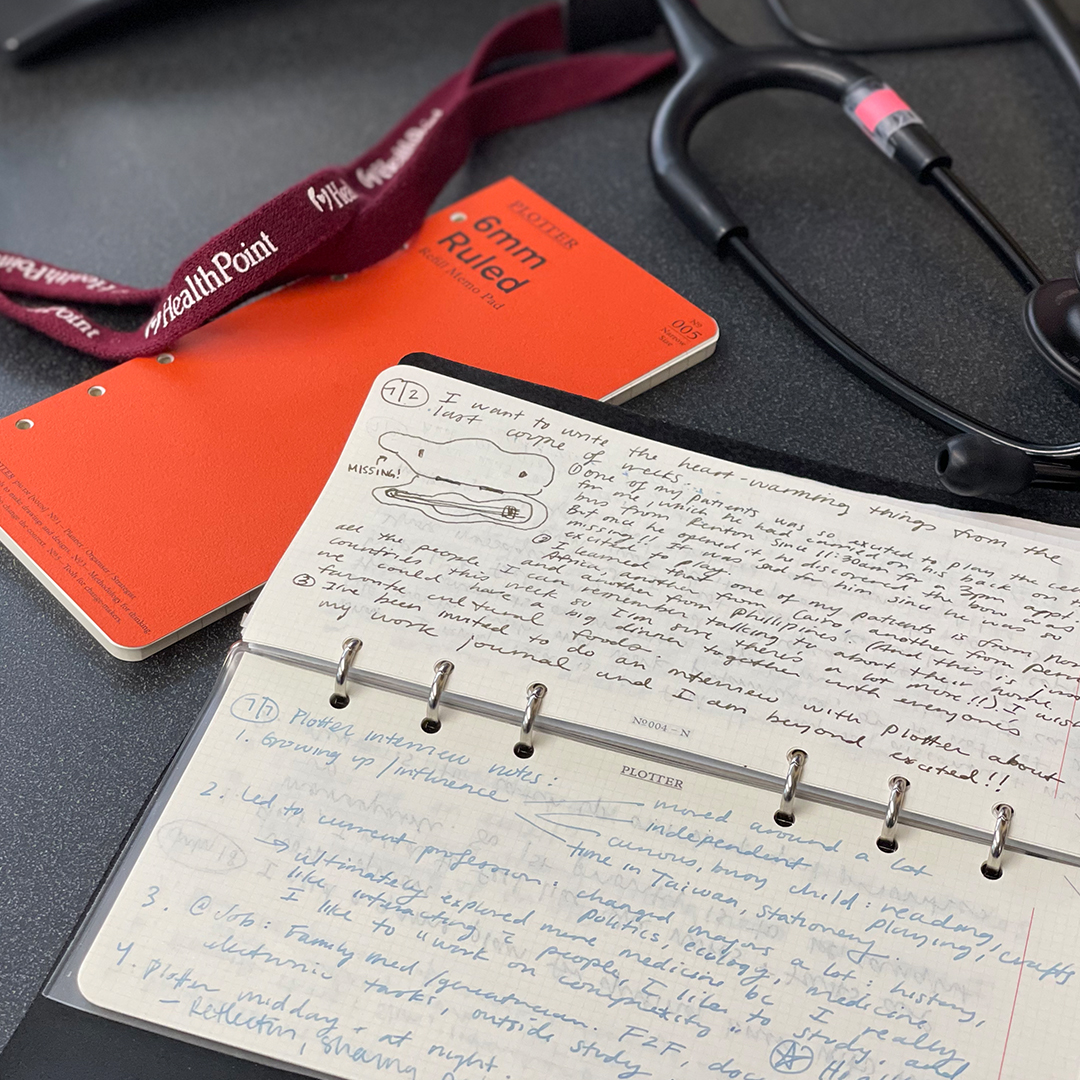 HealthPoint
Heal
HealthPoint
HealthPoint
Point
PLOTTER
6mm
Ruled
Refill Memo Pad
Nº
005
Narrow
Size
7/2 I want to write the heart-warming things from the
last couple of weeks...
MISSING!
① one of my patients was so excited to play the
for me, which he had carried on his back on
bus from Renton since 11:30am for his 3pm
But once he opened it, he discovered the bow was
missing!! I was sad for him since he was so
excited to play.
② I learned that one of my patients is from
Africa, another from Cairo, another from
and another from Phillipines (And this is just
all the people I can remember talking to about their home
countries this week so I'm sure there's a lot more!!) I wish
we could have a big dinner together with everyone's
favorite cultural foods.
③ I've been invited to do an interview with Plotter about
my work journal and I am beyond excited!!
Nº004-N
PLOTTER
7/7 Plotter interview notes:
1. Growing up/influence
moved around a lot
independent
curious, busy child: reading, playing, crafts
time in Taiwan, stationery.
2. Led to current profession: changed majors a lot: history,
politics, ecology, medicine,
→ ultimately explored more medicine bc I really
like interacting c people, I like to study, and
I like to work on complexity.
3. @ Job: Family med/
F2F,
electronic tasks, outside study
4. Plotter midday + at night.
- Reflection, sharing